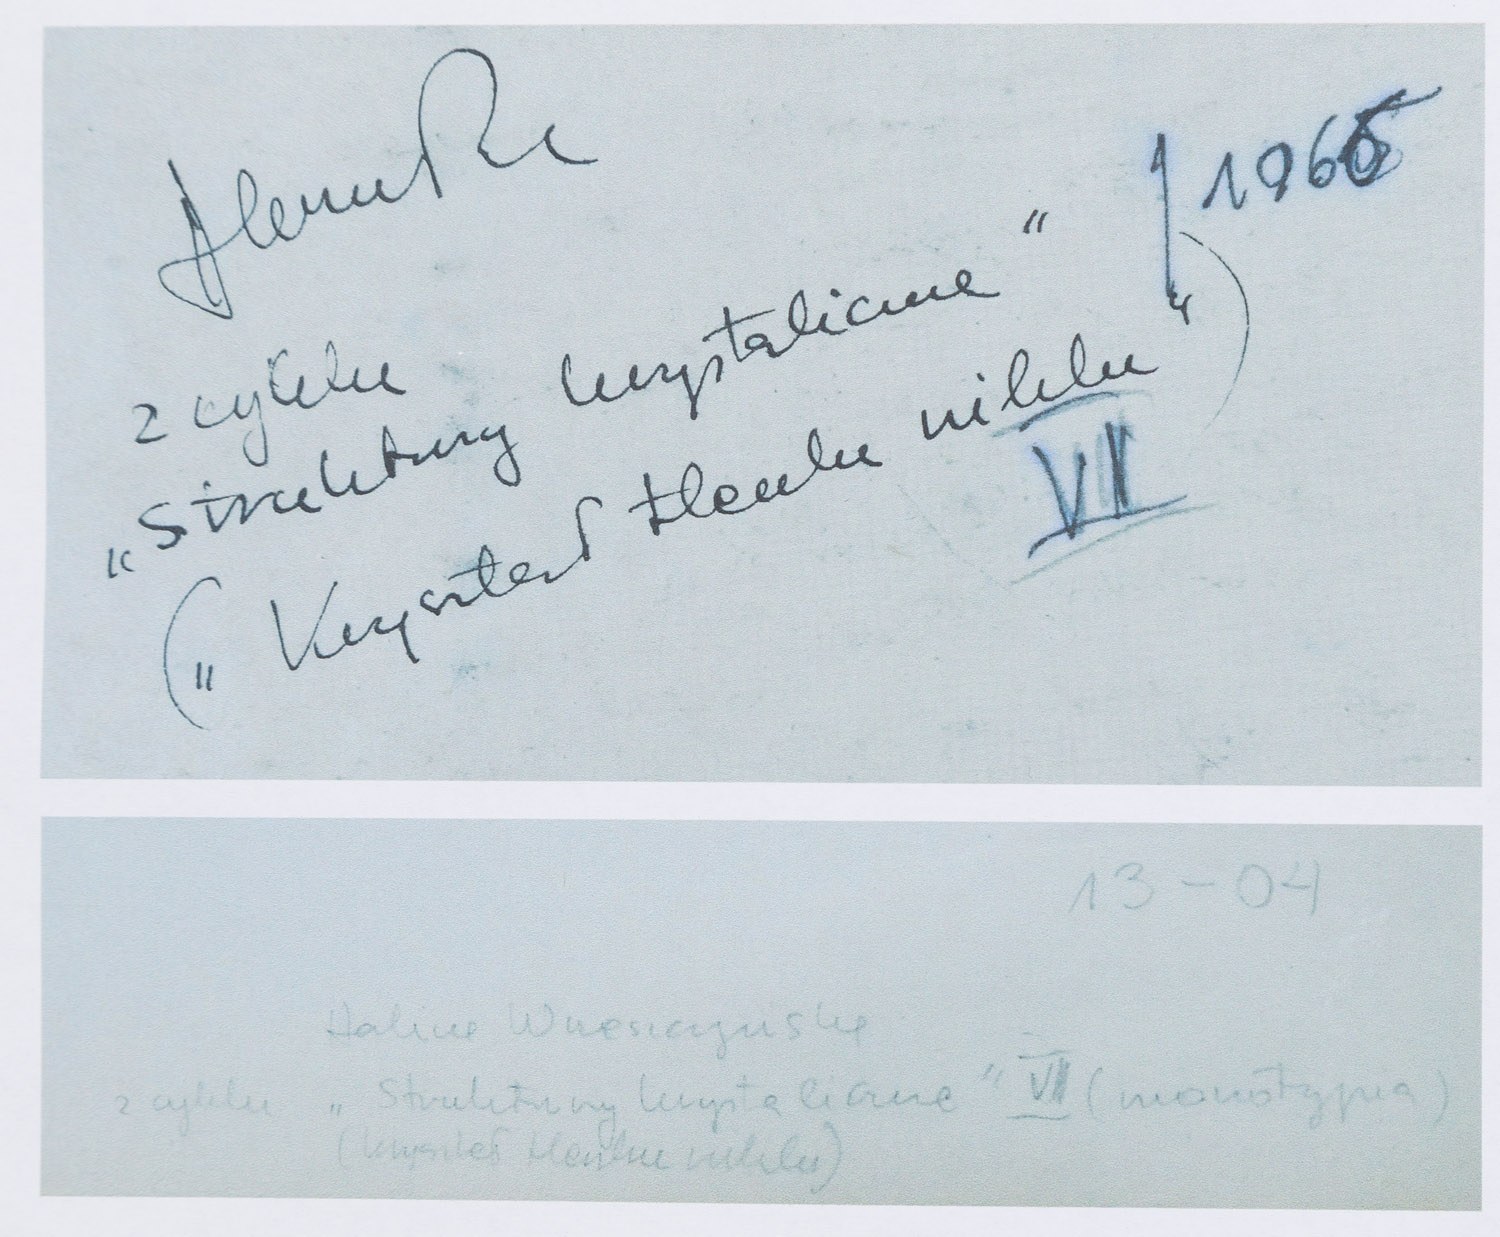 1965
z cyklu
„Struktury krystaliczne”
(„Kryształ tlenku niklu”)
VII
13-04
Halina Wrzeszczyńska
z cyklu „Struktury krystaliczne” VII (monotypia)
(kryształ tlenku niklu)